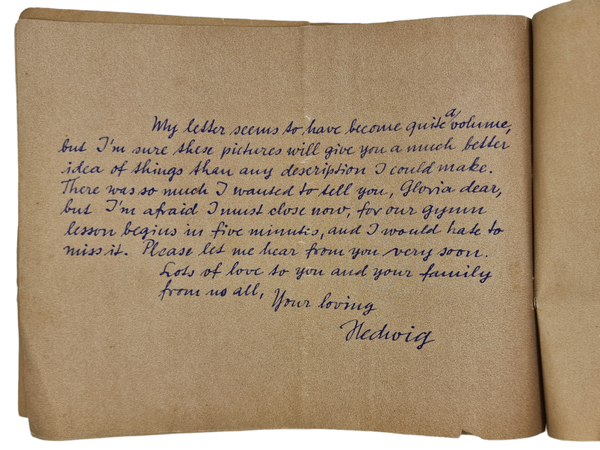 My letter seems to have become quite a volume,
but I'm sure these pictures will give you a much better
idea of things than any description I could make.
There was so much I wanted to tell you, Gloria dear,
but I'm afraid I must close now, for our gymn
lesson begins in five minutes, and I would hate to
miss it. Please let me hear from you very soon.
Lots of love to you and your family
from us all,
Your loving
Hedwig